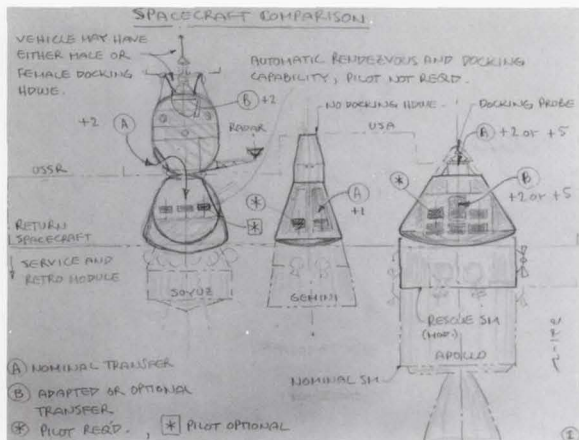 SPACECRAFT COMPARISON
VEHICLE MAY HAVE
EITHER MALE OR
FEMALE DOCKING
HDWE.
AUTOMATIC RENDEZVOUS AND DOCKING
CAPABILITY, PILOT NOT REQ'D.
B +2
A
+2
RADAR
NO DOCKING HDWE.
DOCKING PROBE
USA
A +2 or +5
USSR
*
A
+1
*
B
+2 or +5
*
RETURN
SPACECRAFT
SERVICE AND
RETRO MODULE
SOYUZ
GEMINI
RESCUE SM
(MOD.)
APOLLO
NOMINAL SM
A NOMINAL TRANSFER
B ADAPTED OR OPTIONAL
TRANSFER
* PILOT REQ'D. , * PILOT OPTIONAL